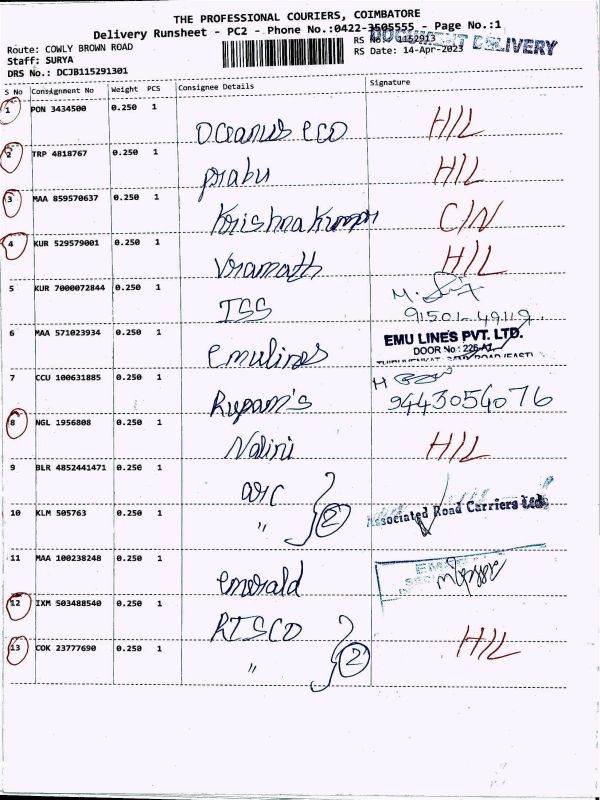 THE PROFESSIONAL COURIERS, COIMBATORE
Delivery Runsheet - PC2 - Phone No.:0422-3505555 - Page No.:1
Route: COWLY BROWN ROAD
RS No.: 1152913
DOCUMENT DELIVERY
Staff: SURYA
RS Date: 14-Apr-2023
DRS No.: DCJB115291301
S No Consignment No Weight PCS Consignee Details Signature
1 PON 3434500 0.250 1 Oceanus eco H/L
2 TRP 4818767 0.250 1 prabu H/L
3 MAA 859570637 0.250 1 Krishna Kumar C/N
4 KUR 529579001 0.250 1 Vramath H/L
5 KUR 7000072844 0.250 1 ISS
91501-49119
6 MAA 571023934 0.250 1 emulines EMU LINES PVT. LTD.
DOOR No: 226-A1,
7 CCU 100631885 0.250 1 Rupam's 9443054076
8 NGL 1956808 0.250 1 Nalini H/L
9 BLR 4852441471 0.250 1 arc
10 KLM 505763 0.250 1 " 2 Associated Road Carriers Ltd.
11 MAA 100238248 0.250 1 emerald
12 IXM 503488540 0.250 1 RTSCO
13 COK 23777690 0.250 1 " 2 H/L